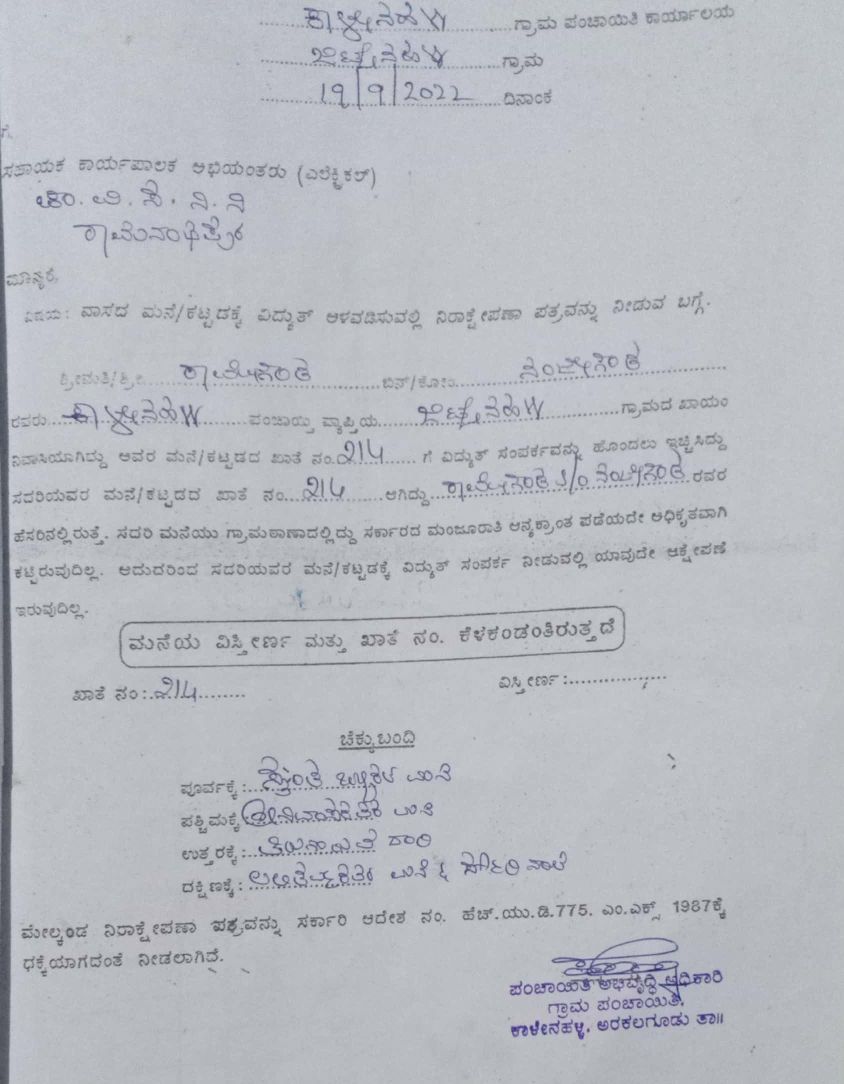 ಕಾಳೇನಹಳ್ಳಿ ಗ್ರಾಮ ಪಂಚಾಯಿತಿ ಕಾರ್ಯಾಲಯ
ಗ್ರಾಮ
19/9/2022 ದಿನಾಂಕ
ಗೆ,
ಸಹಾಯಕ ಕಾರ್ಯಪಾಲಕ ಅಭಿಯಂತರು (ಎಲೆಕ್ಟ್ರಿಕಲ್)
ಚಾ. ವಿ. ಸ. ನಿ. ನಿ
ರಾಮನಾಥಪುರ
ಮಾನ್ಯರೆ,
ವಿಷಯ: ವಾಸದ ಮನೆ/ಕಟ್ಟಡಕ್ಕೆ ವಿದ್ಯುತ್ ಅಳವಡಿಸುವಲ್ಲಿ ನಿರಾಕ್ಷೇಪಣಾ ಪತ್ರವನ್ನು ನೀಡುವ ಬಗ್ಗೆ.
ಶ್ರೀಮತಿ/ಶ್ರೀ ಬಿನ್/ಕೋಂ ನಂಜೇಗೌಡ
ರವರು ಕಾಳೇನಹಳ್ಳಿ ಪಂಚಾಯ್ತಿ ವ್ಯಾಪ್ತಿಯ ಗ್ರಾಮದ ಖಾಯಂ
ನಿವಾಸಿಯಾಗಿದ್ದು ಅವರ ಮನೆ/ಕಟ್ಟಡದ ಖಾತೆ ನಂ. 214 ಗೆ ವಿದ್ಯುತ್ ಸಂಪರ್ಕವನ್ನು ಹೊಂದಲು ಇಚ್ಚಿಸಿದ್ದು
ಸದರಿಯವರ ಮನೆ/ಕಟ್ಟಡದ ಖಾತೆ ನಂ. 214 ಆಗಿದ್ದು S/o ನಂಜೇಗೌಡ ರವರ
ಹೆಸರಿನಲ್ಲಿರುತ್ತೆ. ಸದರಿ ಮನೆಯು ಗ್ರಾಮಠಾಣಾದಲ್ಲಿದ್ದು ಸರ್ಕಾರದ ಮಂಜೂರಾತಿ ಅನ್ಯಕ್ರಾಂತ ಪಡೆಯದೇ ಅಧಿಕೃತವಾಗಿ
ಕಟ್ಟಿರುವುದಿಲ್ಲ. ಆದುದರಿಂದ ಸದರಿಯವರ ಮನೆ/ಕಟ್ಟಡಕ್ಕೆ ವಿದ್ಯುತ್ ಸಂಪರ್ಕ ನೀಡುವಲ್ಲಿ ಯಾವುದೇ ಆಕ್ಷೇಪಣೆ
ಇರುವುದಿಲ್ಲ.
ಮನೆಯ ವಿಸ್ತೀರ್ಣ ಮತ್ತು ಖಾತೆ ನಂ. ಕೆಳಕಂಡಂತಿರುತ್ತದೆ
ಖಾತೆ ನಂ: 214 ವಿಸ್ತೀರ್ಣ:
ಚೆಕ್ಕುಬಂದಿ
ಪೂರ್ವಕ್ಕೆ: ಮನೆ
ಪಶ್ಚಿಮಕ್ಕೆ ಮನೆ
ಉತ್ತರಕ್ಕೆ:
ದಕ್ಷಿಣಕ್ಕೆ: ಮನೆ &
ಮೇಲ್ಕಂಡ ನಿರಾಕ್ಷೇಪಣಾ ಪತ್ರವನ್ನು ಸರ್ಕಾರಿ ಆದೇಶ ನಂ. ಹೆಚ್.ಯು.ಡಿ.775. ಎಂ.ಎಕ್ಸ್ 1987ಕ್ಕೆ
ಧಕ್ಕೆಯಾಗದಂತೆ ನೀಡಲಾಗಿದೆ.
ಪಂಚಾಯಿತಿ ಅಭಿವೃದ್ಧಿ ಅಧಿಕಾರಿ
ಗ್ರಾಮ ಪಂಚಾಯಿತಿ,
ಕಾಳೇನಹಳ್ಳಿ, ಅರಕಲಗೂಡು ತಾ॥